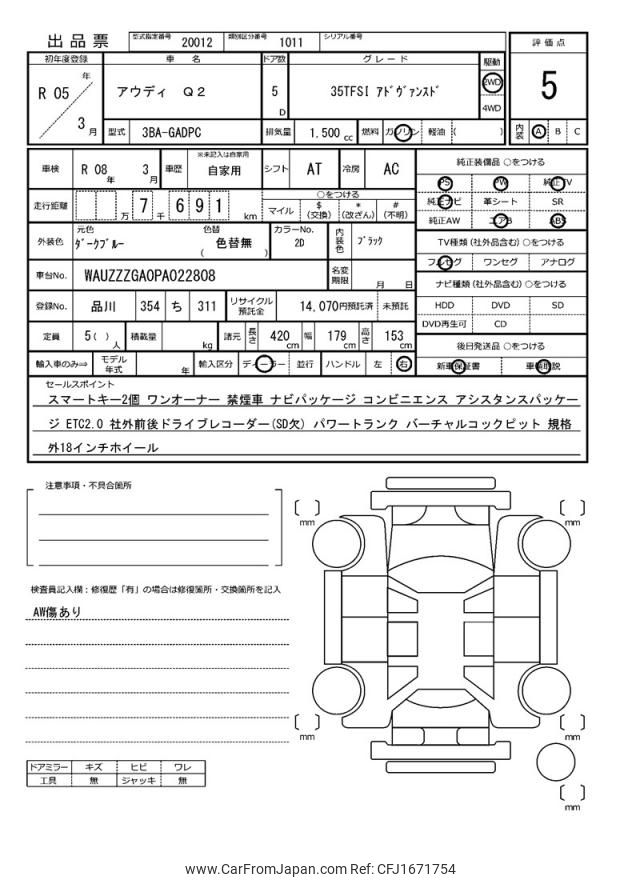 出品票 型式指定番号 20012 類別区分番号 1011 シリアル番号
評価点
5
内装 A B C
初年度登録 車名 ドア数 グレード 駆動
R 05 年 3 月 アウディ Q2 5 D 35TFSI アドヴァンスド 2WD 4WD
型式 3BA-GADPC 排気量 1.500 cc 燃料 ガソリン 軽油 ( )
車検 R 08 年 3 月 車歴 ※未記入は自家用 自家用 シフト AT 冷房 AC
走行距離 万 7 千 6 9 1 km ○をつける
マイル $ (交換) * (改ざん) # (不明)
外装色 元色 ダークブルー 色替 色替無 ( ) カラーNo. 2D 内装色 ブラック
車台No. WAUZZZGA0PA022808 名変期限 月 日
登録No. 品川 354 ち 311 リサイクル預託金 14,070円預託済 未預託
定員 5( ) 人 積載量 kg 諸元 長さ 420 cm 幅 179 cm 高さ 153 cm
輸入車のみ⇒ モデル年式 年 輸入区分 ディーラー 並行 ハンドル 左 右
純正装備品 ○をつける
PS PW 純正TV
純正ナビ 革シート SR
純正AW エアB ABS
TV種類 (社外品含む) ○をつける
フルセグ ワンセグ アナログ
ナビ種類 (社外品含む) ○をつける
HDD DVD SD
DVD再生可 CD
後日発送品 ○をつける
新車保証書 車輌取説
セールスポイント
スマートキー2個 ワンオーナー 禁煙車 ナビパッケージ コンビニエンス アシスタンスパッケー
ジ ETC2.0 社外前後ドライブレコーダー(SD欠) パワートランク バーチャルコックピット 規格
外18インチホイール
注意事項・不具合箇所
検査員記入欄：修復歴「有」の場合は修復箇所・交換箇所を記入
AW傷あり
ドアミラー キズ ヒビ ワレ
工具 無 ジャッキ 無
[ ] mm
[ ] mm
[ ] mm
[ ] mm
[ ] mm
www.CarFromJapan.com Ref: CFJ1671754